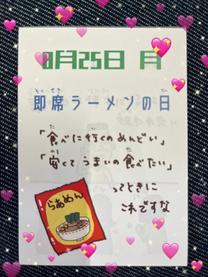 8月25日 月
即席ラーメンの日
「食べに行くのめんどい」
「安くてうまいの食べたい」
ってときに
これですな
らあめん